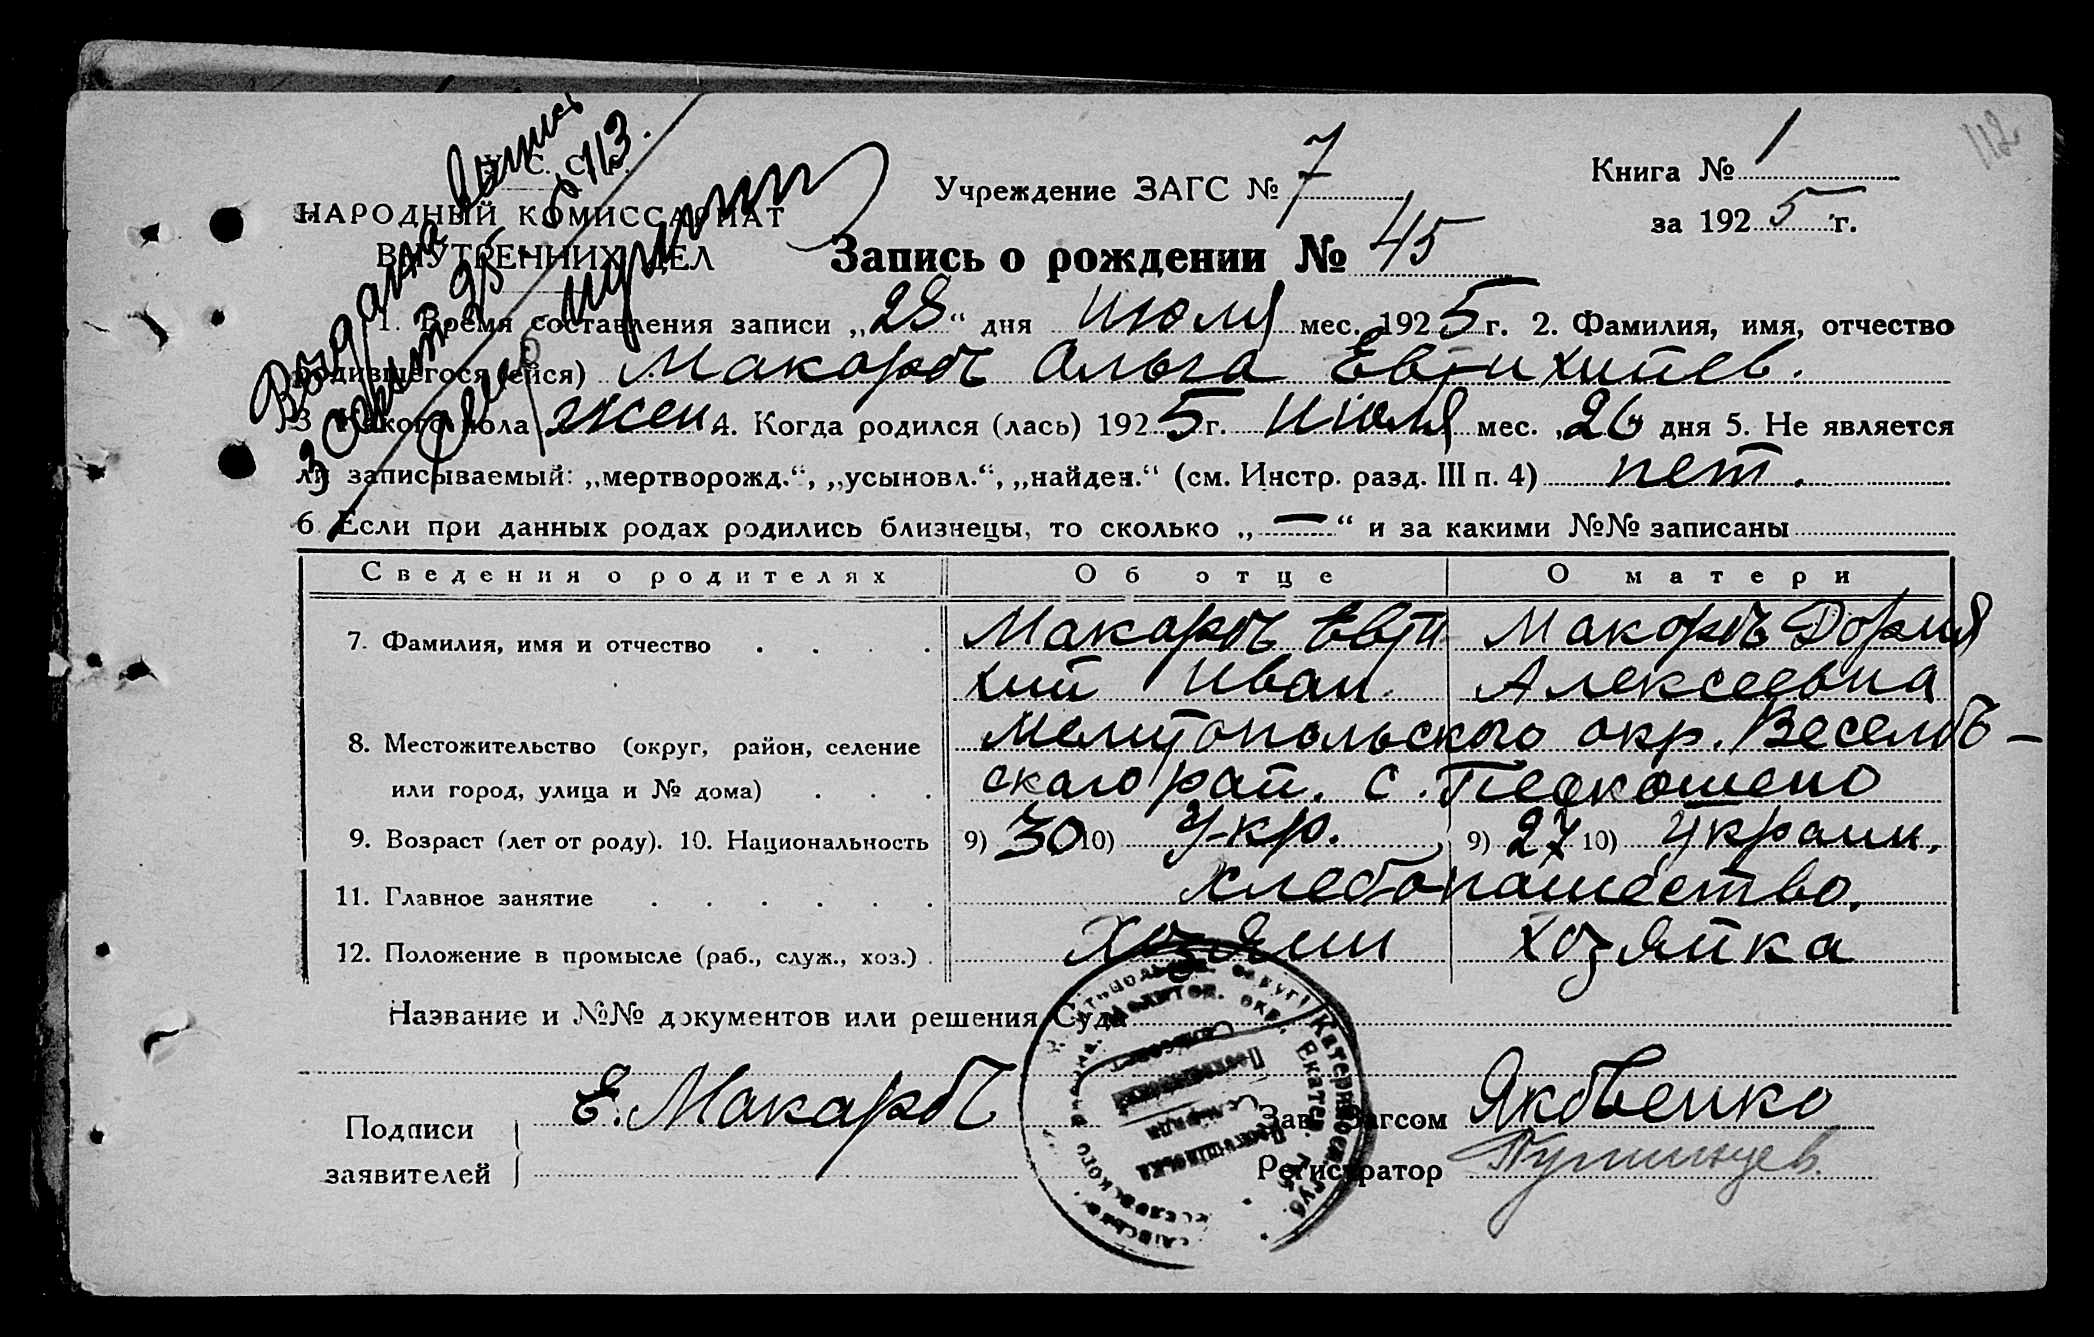 112
У. С. С. Р.
НАРОДНЫЙ КОМИССАРИАТ
ВНУТРЕННИХ ДЕЛ
Учреждение ЗАГС № 7
Книга № 1
за 1925 г.
Запись о рождении № 45
1. Время составления записи „28“ дня Июля мес. 1925 г. 2. Фамилия, имя, отчество
родившегося (ейся) Макаровъ Ольга Евтихиев.
3 Какого пола жен 4. Когда родился (лась) 1925 г. Июля мес. 26 дня 5. Не является
ли записываемый: „мертворожд.“, „усыновл.“, „найден.“ (см. Инстр. разд. III п. 4) нет.
6. Если при данных родах родились близнецы, то сколько „—“ и за какими №№ записаны
Сведения о родителях Об отце О матери
7. Фамилия, имя и отчество Макаровъ Евти Макоровъ Дория
хий Иван. Алексеевна
8. Местожительство (округ, район, селение Мелитопольского окр. Веселовъ-
или город, улица и № дома) скаго рай. с.
9. Возраст (лет от роду). 10. Национальность 9) 30 10) Укр. 9) 27 10) Украин.
11. Главное занятие хлебопашество.
12. Положение в промысле (раб., служ., хоз.) Хозяин хозяйка
Название и №№ документов или решения Суда
Подписи
заявителей
Е. Макаровъ
Зав. Загсом Яковенко
Регистратор